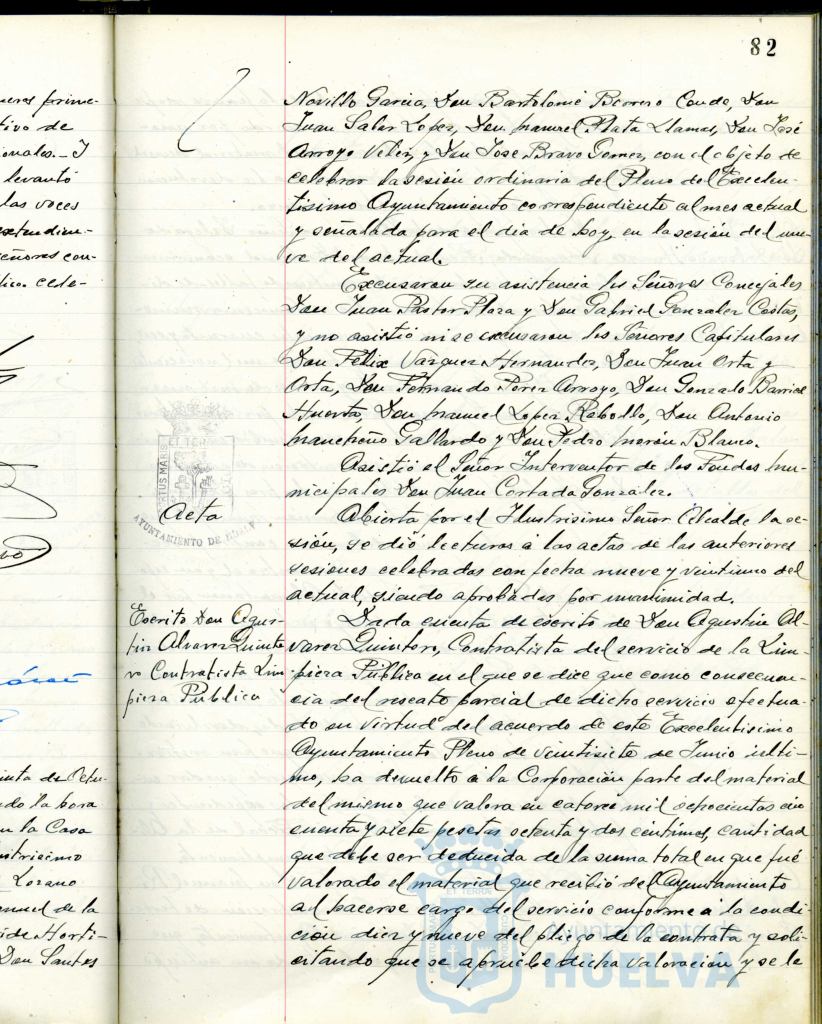 82
neres prime-
tivo de
ionales.- Y
levantó
las voces
extendien-
señores con-
cinta de Octu-
ndo la hora
en la Casa
ustrisimo
Lozano
anuel de la
ide Horti-
Don Santos
Acta
Escrito Don Agus-
tin Alvarez Quinte
ro Contratista Lim
pieza Publica
Novillo Garcia, Don Bartolomé Borrero Conde, Don
Juan Salas Lopez, Don Manuel Plata Llamas, Don José
Arroyo Velez, y Don Jose Bravo Gomez, con el objeto de
celebrar la sesión ordinaria del Pleno del Excelen-
tisimo Ayuntamiento correspondiente al mes actual
y señalada para el dia de hoy, en la sesión del nue-
ve del actual.
Excusaron su asistencia los Señores Concejales
Don Juan Pastor Plaza y Don Gabriel Gonzalez Costas,
y no asistió ni se excusaron los Señores Capitulares
Don Félix Vazquez Hernandez, Don Juan Orta y
Orta, Don Fernando Perez Arroyo, Don Gonzalo Barrial
Huerta, Don Manuel Lopez Rebollo, Don Antonio
Mancheño Gallardo y Don Pedro Morón Blanco.
Asistió el Señor Interventor de los Fondos Mu-
nicipales Don Juan Cortada Gonzalez.
Abierta por el Ilustrisimo Señor Alcalde la se-
sión, se dió lecturas á las actas de las anteriores
sesiones celebradas con fecha nueve y veintiuno del
actual, siendo aprobadas por unanimidad.
Dada cuenta de escrito de Don Agustin Al-
varez Quintero, Contratista del servicio de la Lim-
pieza Pública en el que se dice que como consecuen-
cia del rescate parcial de dicho servicio efectua-
do en virtud del acuerdo de este Excelentisimo
Ayuntamiento Pleno de veintisiete de Junio ulti-
mo, ha devuelto a la Corporación parte del material
del mismo que valora en catorce mil ochocientas cin
cuenta y siete pesetas setenta y dos centimos, cantidad
que debe ser deducida de la suma total en que fué
valorado el material que recibió del Ayuntamiento
al hacerse cargo del servicio conforme á la condi-
ción diez y nueve del pliego de la contrata y soli-
citando que se apruebe dicha valoración y se le
AYUNTAMIENTO DE HUELVA
Ayuntamiento de
HUELVA